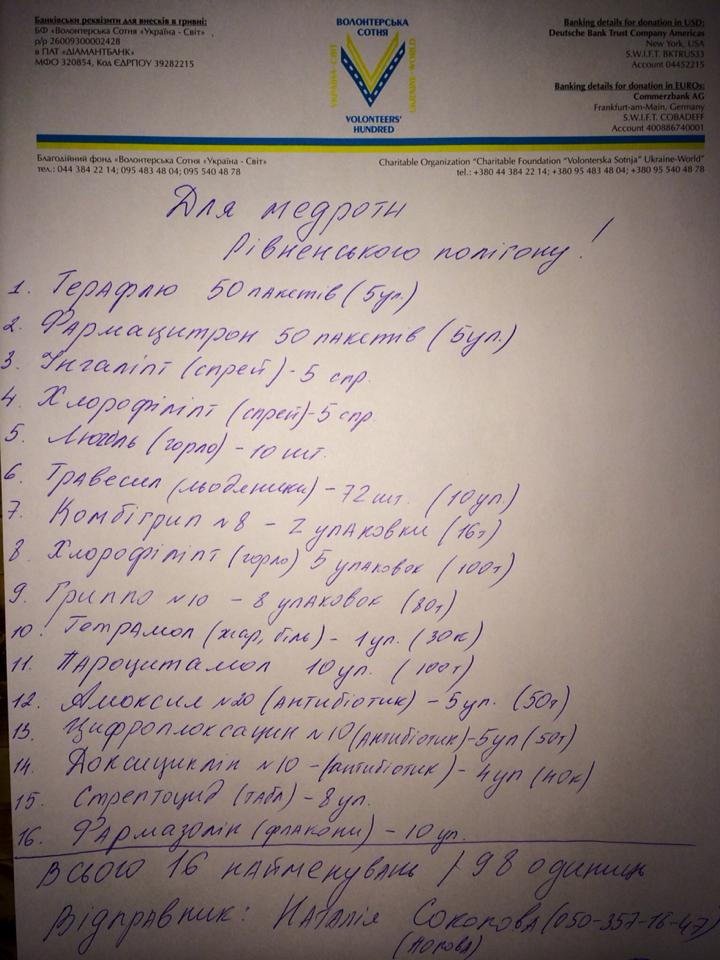 Банківськи реквізити для внесків в гривні:
БФ «Волонтерська Сотня «Україна - Світ»
р/р 26009300002428
в ПАТ «ДІАМАНТБАНК»
МФО 320854, Код ЄДРПОУ 39282215
ВОЛОНТЕРСЬКА
СОТНЯ
УКРАЇНА-СВІТ
UKRAINE-WORLD
VOLONTEERS'
HUNDRED
Banking details for donation in USD:
Deutsche Bank Trust Company Americas
New York, USA
S.W.I.F.T. BKTRUS33
Account 04452215
Banking details for donation in EUROs:
Commerzbank AG
Frankfurt-am-Main, Germany
S.W.I.F.T. COBADEFF
Account 400886740001
Благодійний фонд «Волонтерська Сотня «Україна - Світ»
тел.: 044 384 22 14; 095 483 48 04; 095 540 48 78
Charitable Organization "Charitable Foundation "Volonterska Sotnja" Ukraine-World"
tel.: +380 44 384 22 14; +380 95 483 48 04; +380 95 540 48 78
Для медроти
Рівненського полігону!
1. Терафлю 50 пакетів (5уп.)
2. Фармацитрон 50 пакетів (5уп.)
3. Інгаліпт (спрей) - 5 спр.
4. Хлорофіліпт (спрей) - 5 спр.
5. (горло) - 10 шт.
6. Травесил (льодяники) - 72 шт. (10уп)
7. Комбігрип №8 - 2 упаковки (16т)
8. Хлорофіліпт (горло) 5 упаковок (100т)
9. Гриппо №10 - 8 упаковок (80т)
10. Тетрамол (жар, біль) - 1уп. (30к)
11. Пароцитамол 10уп. (100т)
12. Амоксил №20 (антибіотик) - 5уп. (50т)
13. Цифроплоксацин №10 (антибіотик) - 5уп (50т)
14. Доксициклін №10 - (антибіотик) - 4уп (40к)
15. Стрептоцид (табл) - 8уп.
16. Фармазолін (флакони) - 10уп.
Всього 16 найменувань / 98 одиниць
Відправник: Наталія Соколова (050-357-16-47)
(Попова)